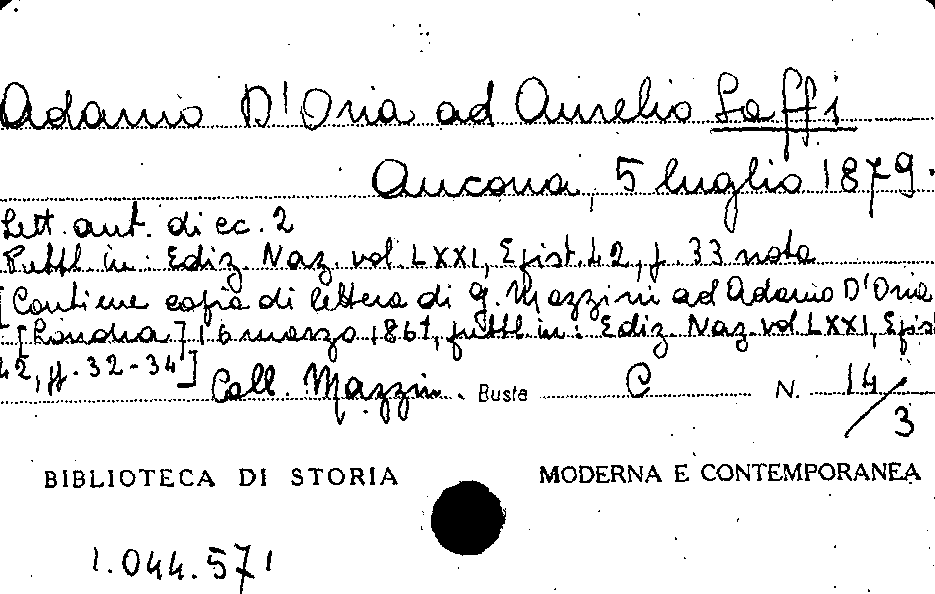 Adamo D'Oria ad Aurelio Saffi
Ancona, 5 luglio 1879.
Lett. aut. di cc. 2
Pubbl. in: Ediz. Naz. vol. LXXI, Epist. 42, p. 33 nota
[Contiene copia di lettera di G. Mazzini ad Adamo D'Oria
[Londra] 16 marzo 1861, pubbl. in: Ediz. Naz. vol LXXI, Epist
42, pp. 32-34]
Coll. Mazzin. Busta C N. 14/3
BIBLIOTECA DI STORIA MODERNA E CONTEMPORANEA
1.044.571